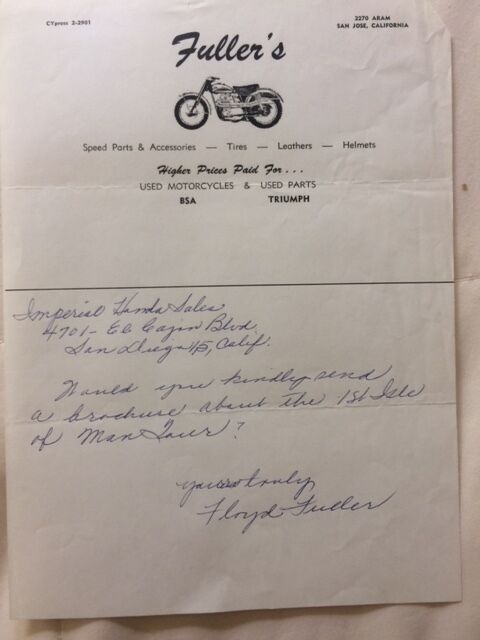 CYpress 2-2901
2270 ARAM
SAN JOSE, CALIFORNIA
Fuller's
Speed Parts & Accessories — Tires — Leathers — Helmets
Higher Prices Paid For...
USED MOTORCYCLES & USED PARTS
BSA TRIUMPH
Imperial Honda Sales
4701 - El Cajon Blvd.
San Diego 15, Calif.
Would you kindly send
a brochure about the 1st Isle
of Man Tour?
yours truly
Floyd Fuller